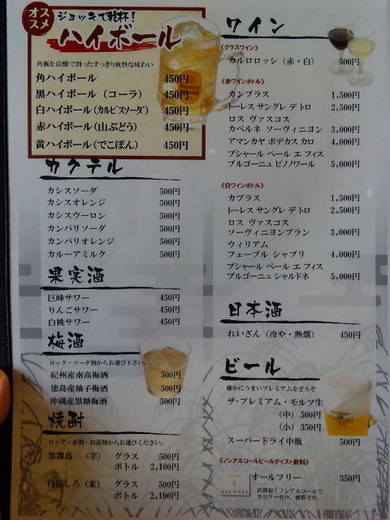 オススメ
ジョッキで乾杯！
ハイボール
角瓶を炭酸で割ったすっきり爽快な味わい
角ハイボール 450円
黒ハイボール（コーラ） 450円
白ハイボール（カルピスソーダ） 450円
赤ハイボール（山ぶどう） 450円
黄ハイボール（でこぽん） 450円
カクテル
カシスソーダ 500円
カシスオレンジ 500円
カシスウーロン 500円
カンパリソーダ 500円
カンパリオレンジ 500円
カルーアミルク 500円
果実酒
巨峰サワー 450円
りんごサワー 450円
白桃サワー 450円
梅酒
ロック・ソーダ割からお選び下さい。
紀州産南高梅酒 500円
徳島産柚子梅酒 500円
沖縄産黒糖梅酒 500円
焼酎
ロック・水割・お湯割からお選びください。
黒霧島（芋） グラス 500円
ボトル 2,100円
白岳しろ（米） グラス 500円
ボトル 2,100円
ワイン
《グラスワイン》
カルロロッシ（赤・白） 500円
《赤ワインボトル》
カンブラス 1,500円
トーレス サングレ デ トロ 2,500円
ロス ヴァスコス
カベルネ ソーヴィニヨン 3,000円
アマンカヤ ボデカス カロ 4,000円
ブシャール ペール エ フィス
ブルゴーニュ ピノノワール 5,000円
《白ワインボトル》
カブラス 1,500円
トーレス サングレ デ トロ 2,500円
ロス ヴァスコス
ソーヴィニヨンブラン 3,000円
ウィリアム
フェーブル シャブリ 4,000円
ブシャール ペール エ フィス
ブルゴーニュ シャルドネ 5,000円
日本酒
れいざん（冷や・熱燗） 450円
ビール
確かにうまいプレミアムをどうぞ
ザ・プレミアム・モルツ生
（中） 500円
（小） 350円
スーパードライ中瓶 500円
《ノンアルコールビールテイスト飲料》
オールフリー 350円
ALL-FREE
カロリーゼロ、糖質ゼロ。